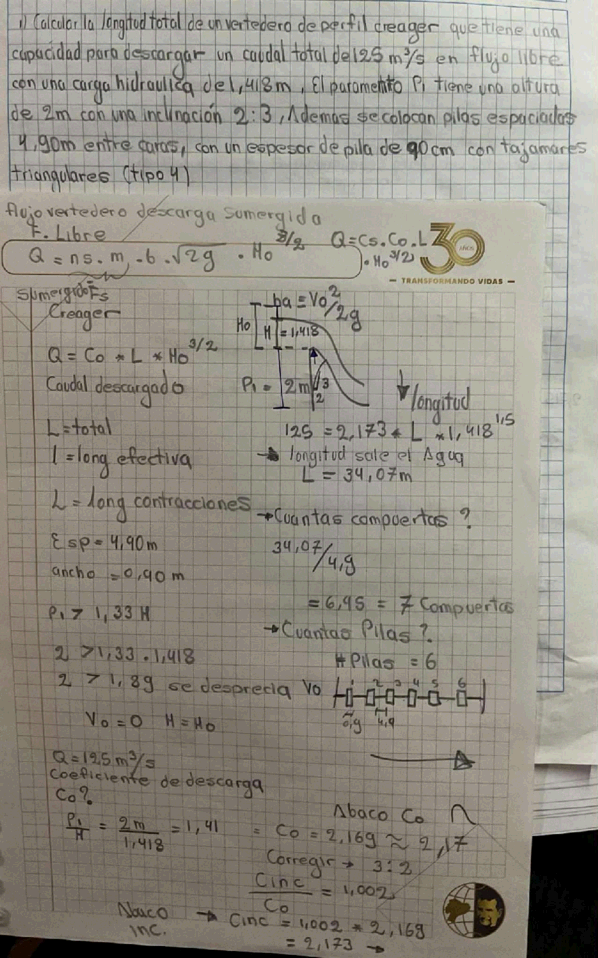 1) Calcular la longitud total de un vertedero de perfil creager que tiene una
capacidad para descargar un caudal total de 125 m³/s en flujo libre
con una carga hidraulica de 1,418m, El paramento P1 tiene una altura
de 2m con una inclinación 2:3, Ademas se colocan pilas espaciadas
4,90m entre caras, con un espesor de pila de 90cm con tajamares
triangulares (tipo 4)
flujo vertedero descarga sumergida
F. Libre
Q = ns. m. b. √2g . Ho^3/2
Q = Cs. Co. L
. Ho^3/2
30
AÑOS
— TRANSFORMANDO VIDAS —
sumergido Fs
Creager
ha = Vo²/2g
Ho
H = 1,418
Q = Co * L * Ho^3/2
Caudal descargado
P1 = 2m
3
2
longitud
125 = 2,173 * L * 1,418^1,5
L = total
l = long efectiva
→ longitud sale el Agua
L = 34,07m
L = long contracciones
→ Cuantas compuertas ?
Esp = 4,90m
34,07/4,9
ancho = 0,90 m
= 6,95 = 7 Compuertas
P1 > 1,33 H
→ Cuantas Pilas ?
2 > 1,33 . 1,418
# Pilas = 6
2 > 1,89 se desprecia Vo
1 2 3 4 5 6
0,9 4,9
Vo = 0 H = Ho
Q = 125 m³/s
Coeficiente de descarga
Co?
Abaco Co
P1/H = 2m/1,418 = 1,41
= Co = 2,169 ≈ 2,17
Corregir → 3:2
Cinc/Co = 1,002
Abaco Inc. → Cinc = 1,002 * 2,169
= 2,173 →